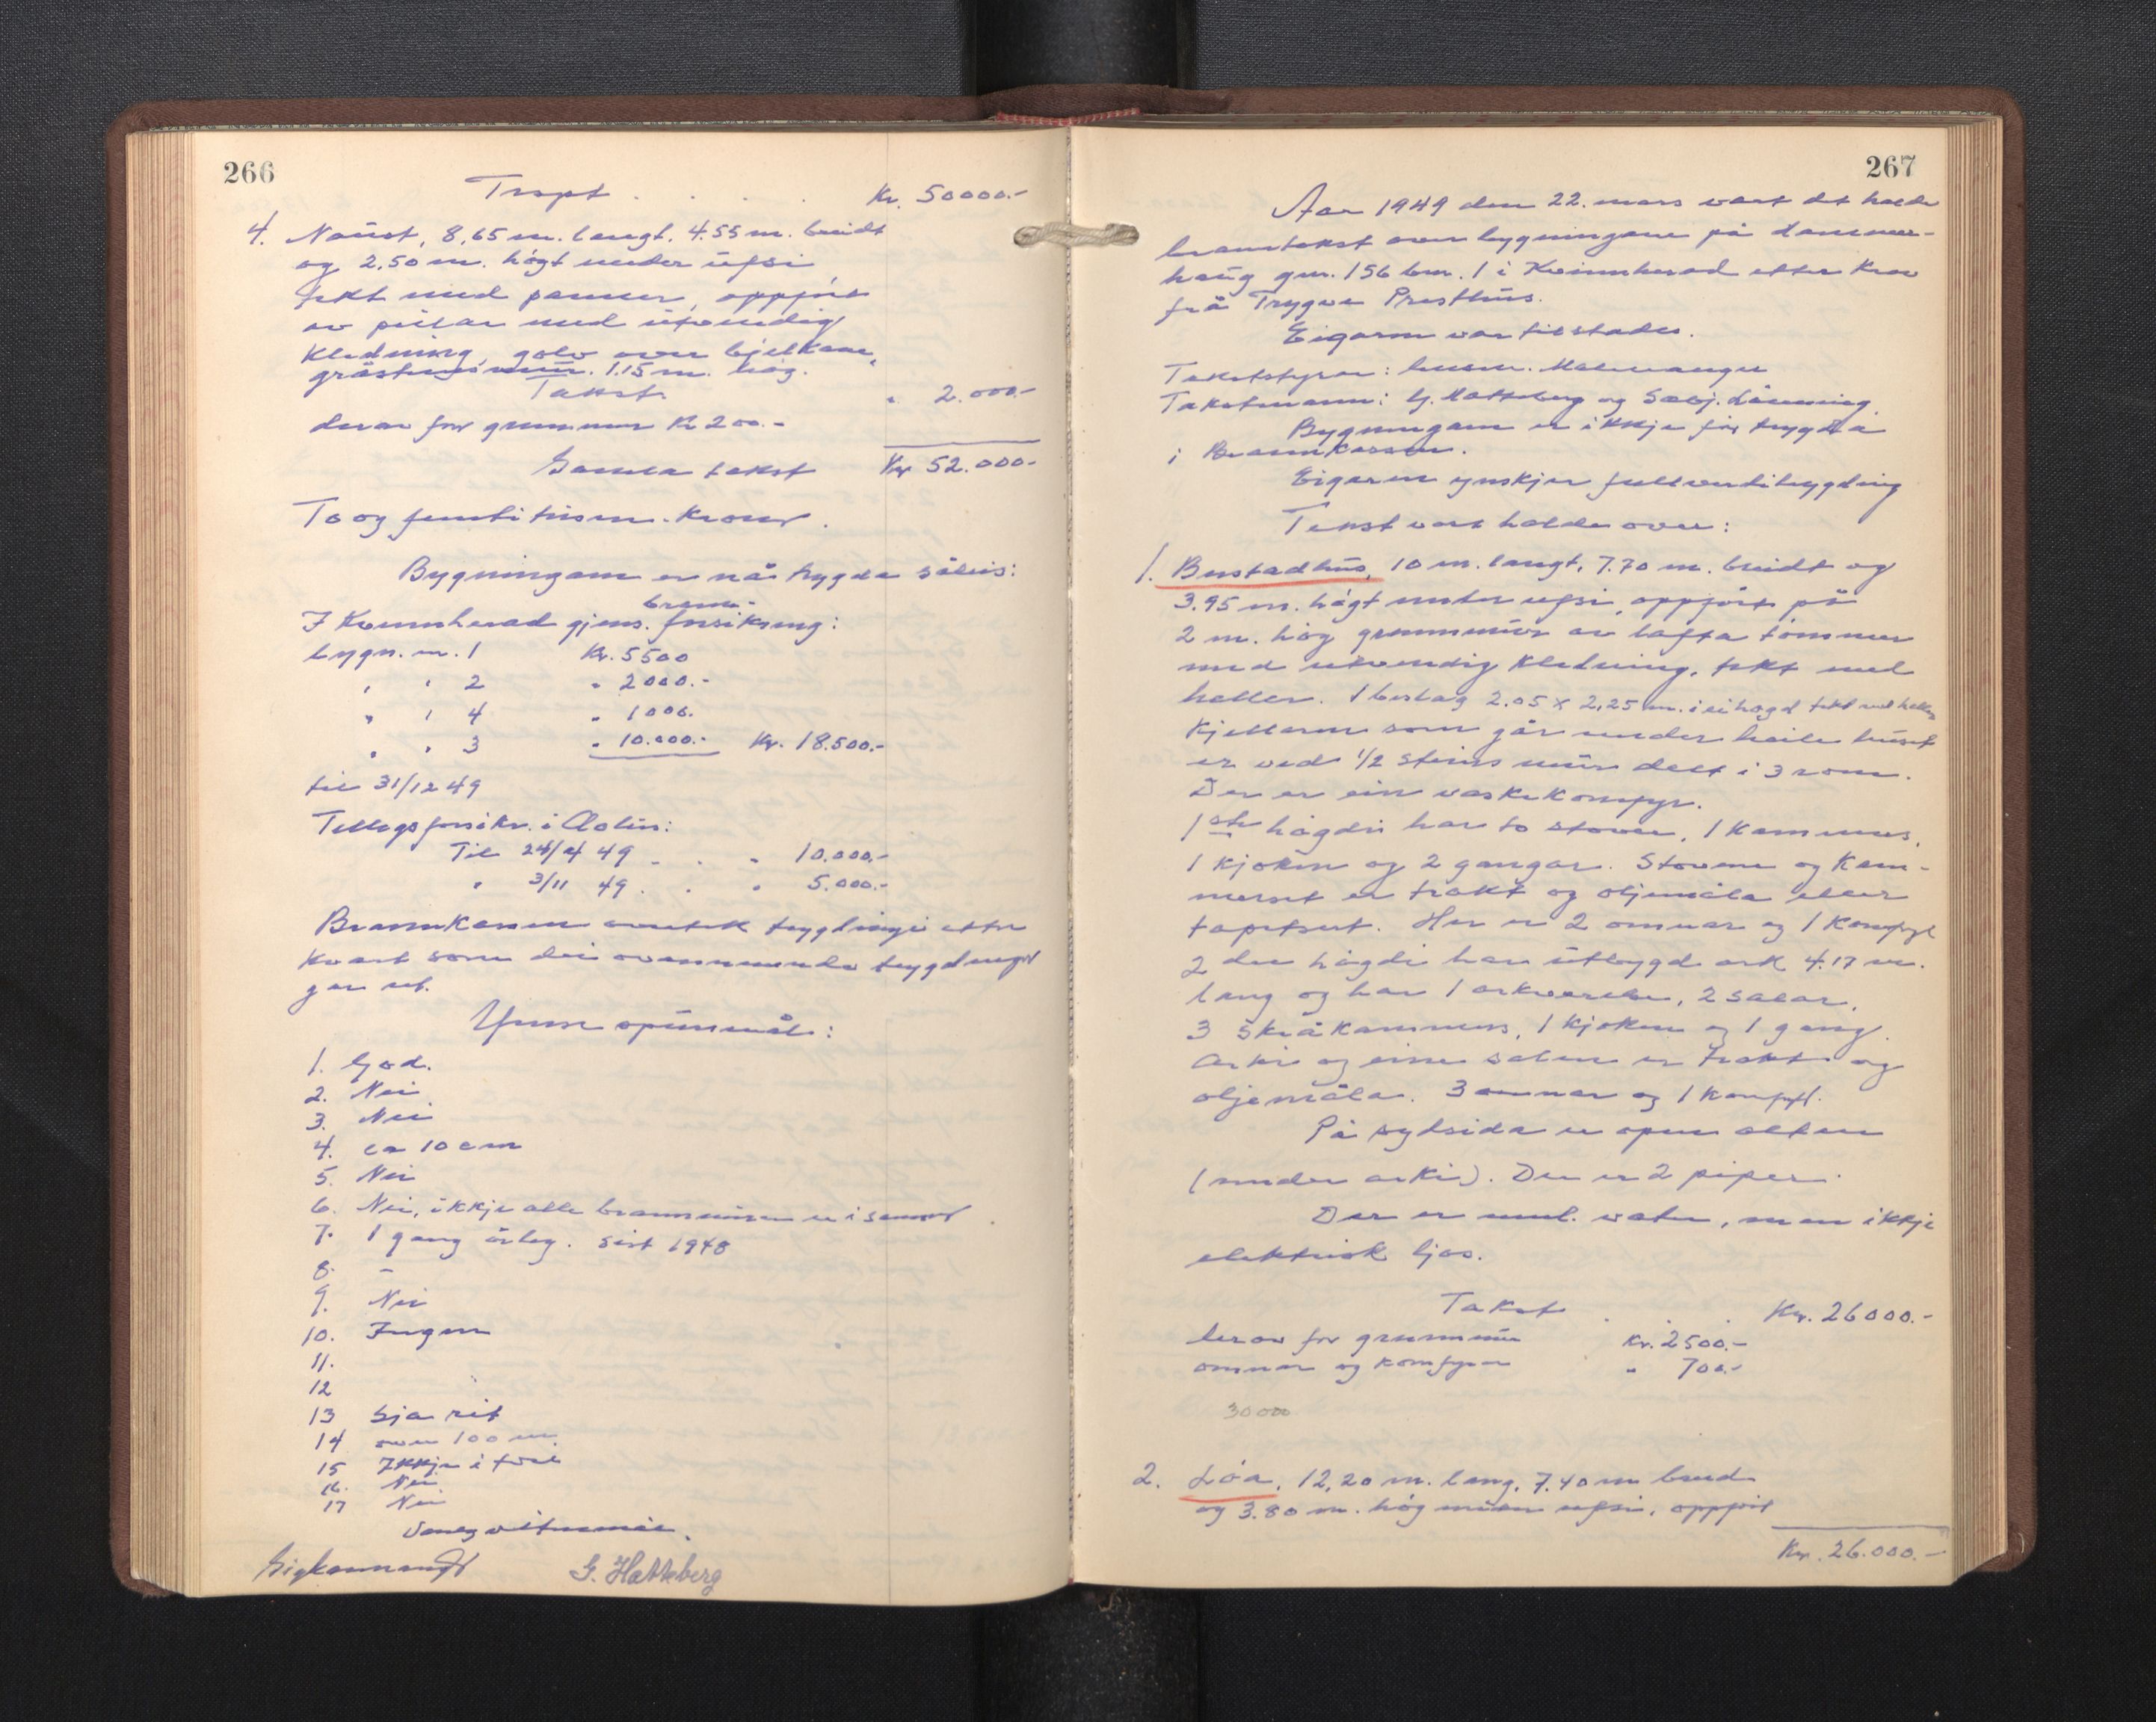 266
Trspt . . . . Kr. 50000.-
4. Naust, 8,65 m. langt, 4.55 m. breidt
og 2.50 m. högt under ufsi
tekt med panner, oppfört
av pilar med utvendig
Kledning, golv over bjelkane,
gråsteinsmur 1.15 m. høg.
Takst " 2.000.-
derav for grunnmur Kr 200.-
Samla takst Kr 52.000.-
To og femti tusen. Kroner.
Bygningane er nå trygda såleis:
brann-
I Kvinnherad gjens. forsikring:
bygn. nr. 1 Kr. 5500
" " 2 " 2000.-
" " 4 " 1000.
" " 3 " 10.000.- Kr. 18.500.-
til 31/12 49
Tilleggsforsikr. i Eolus:
Til 24/4 49 . . " 10.000.-
" 3/11 49 . . " 5.000.-
Brannkassen overtek trygdingi etter
kvart som dei ovannemnde trygdingar
gar ut.
Ymse spursmål:
1. God.
2. Nei
3. Nei
4. ca 10 cm
5. Nei
6. Nei, ikkje alle brannmurar er i samsvar
7. 1 gang årleg. sist 1948
8. -
9. Nei
10. Ingen
11.
12
13 Sja rit
14 over 100 m
15 Ikkje i fare
16. Nei
17 Nei
G. Hatteberg
267
Aar 1949 den 22. mars vart det halde
branntakst over bygningane på Lammer-
haug gnr. 156 bnr. 1 i Kvinnherad etter krav
frå Trygve Presthus.
Eigaren var tilstades.
Takststyrar: lensm. Malmanger
Takstmenn: G. Hatteberg og Sæbj. Lönning.
Bygningane er ikkje før trygda
i Brannkassen.
Eigaren ynskjer fullverditrygding
Takst vart halden over:
1. Bustadhus, 10 m. langt, 7.70 m. breidt og
3.95 m. högt under ufsi, oppfört på
2 m. høg grunnmur av lafta tømmer
med utvendig kledning, tekt med
heller. 1 bislag 2.05 x 2,25 m. i ei høgd tekt med heller
Kjellaren som går under heile huset
er ved 1/2 steins mur delt i 3 rom.
Der er ein vaskekomfyr.
1ste høgdi har to stover, 1 kammers,
1 kjøken og 2 gangar. Stovene og Kam-
merset er trekt og oljemåla eller
tapetsert. Her er 2 omnar og 1 komfyr
2 dre høgdi har utbygd ark 4.17 m.
lang og har 1 arkværelse, 2 salar,
3 skråkammers, 1 kjøken og 1 gang.
Arki og eine salen er trekt og
oljemåla. 3 omnar og 1 komfyr.
På sydsida er open altan
(under arki). Der er 2 piper.
Der er innl. vatn, men ikkje
elektrisk ljos.
Takst . . . Kr. 26000.-
derav for grunnmur Kr. 2500.-
omnar og komfyrar " 700.-
30000
2. Löa, 12,20 m. lang, 7.40 m breid
og 3.80 m. høg under ufsi, oppfört
Kr. 26.000.-